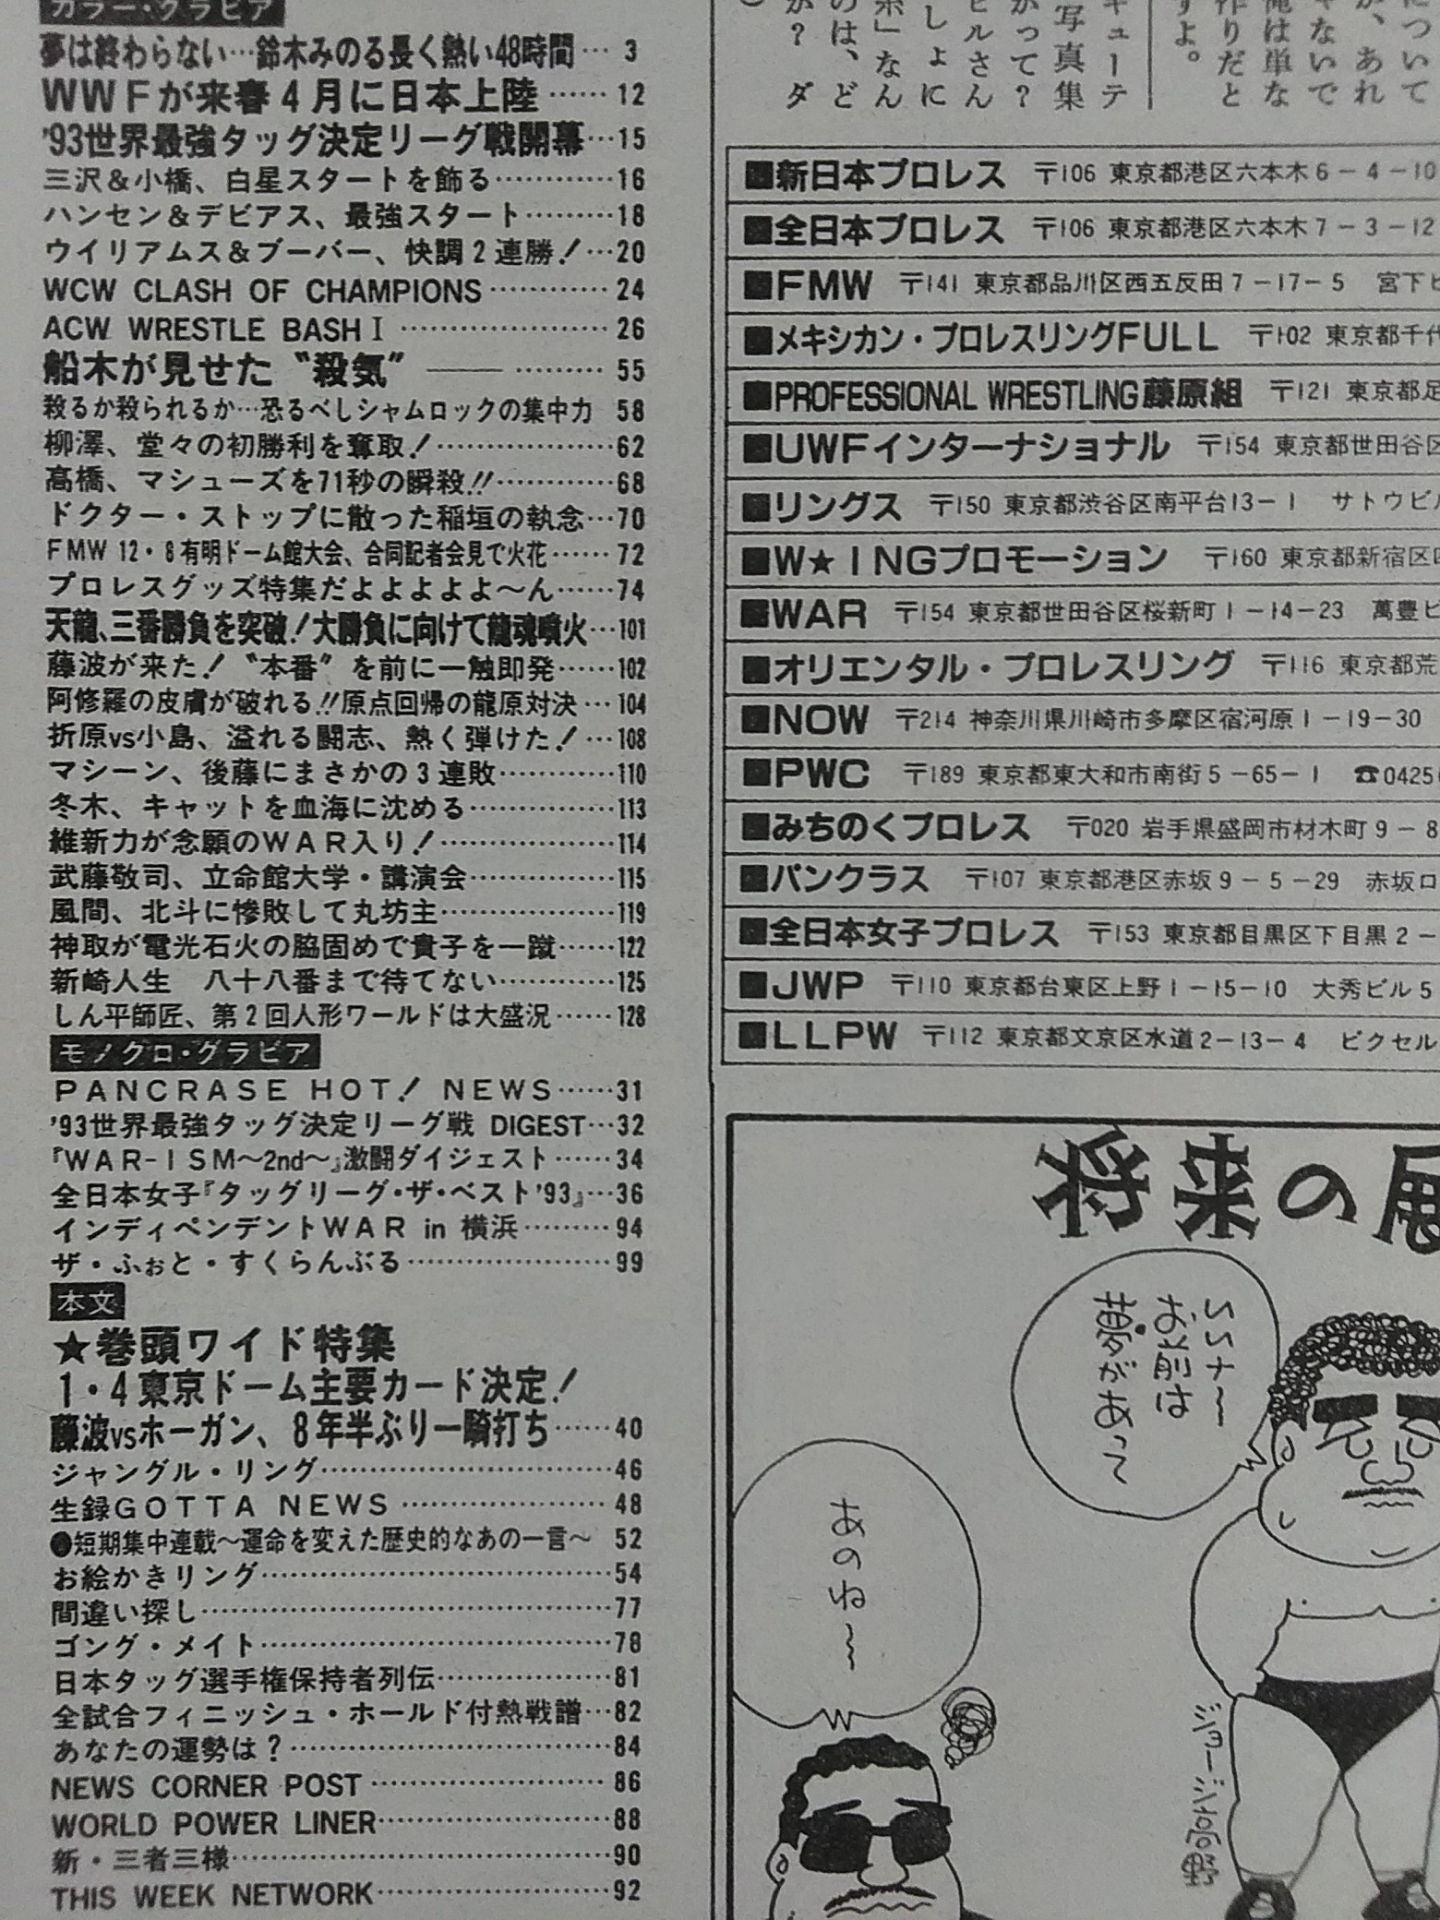 カラー・グラビア
夢は終わらない…鈴木みのる長く熱い48時間…3
WWFが来春4月に日本上陸……12
'93世界最強タッグ決定リーグ戦開幕…15
三沢&小橋、白星スタートを飾る…………16
ハンセン&デビアス、最強スタート………18
ウイリアムス&ブーバー、快調2連勝!…20
WCW CLASH OF CHAMPIONS…………24
ACW WRESTLE BASH Ⅰ…………………26
船木が見せた〝殺気〟――………55
殺るか殺られるか…恐るべしシャムロックの集中力 58
柳澤、堂々の初勝利を奪取!………………62
高橋、マシューズを71秒の瞬殺!!…………68
ドクター・ストップに散った稲垣の執念…70
FMW 12・8有明ドーム館大会、合同記者会見で火花……72
プロレスグッズ特集だよよよよよ〜ん……74
天龍、三番勝負を突破!大勝負に向けて龍魂噴火…101
藤波が来た!〝本番〟を前に一触即発……102
阿修羅の皮膚が破れる!!原点回帰の龍原対決…104
折原vs小島、溢れる闘志、熱く弾けた!…108
マシーン、後藤にまさかの3連敗…………110
冬木、キャットを血海に沈める……………113
維新力が念願のWAR入り!………………114
武藤敬司、立命館大学・講演会……………115
風間、北斗に惨敗して丸坊主………………119
神取が電光石火の脇固めで貴子を一蹴……122
新崎人生 八十八番まで待てない…………125
しん平師匠、第2回人形ワールドは大盛況……128
モノクロ・グラビア
PANCRASE HOT! NEWS……31
'93世界最強タッグ決定リーグ戦 DIGEST…32
『WAR-ISM〜2nd〜』激闘ダイジェスト……34
全日本女子『タッグリーグ・ザ・ベスト'93』…36
インディペンデントWAR in 横浜………94
ザ・ふぉと・すくらんぶる…………………99
本文
★巻頭ワイド特集
1・4東京ドーム主要カード決定!
藤波vsホーガン、8年半ぶり一騎打ち……40
ジャングル・リング…………………………46
生録GOTTA NEWS…………………48
●短期集中連載〜運命を変えた歴史的なあの一言〜 52
お絵かきリング………………………………54
間違い探し……………………………………77
ゴング・メイト………………………………78
日本タッグ選手権保持者列伝………………81
全試合フィニッシュ・ホールド付熱戦譜…82
あなたの運勢は?……………………………84
NEWS CORNER POST……………………86
WORLD POWER LINER……………………88
新・三者三様…………………………………90
THIS WEEK NETWORK……………………92
について
が、あれ
ゃないで
俺は単な
作りだと
すよ。
キューテ
写真集
がって?
ビルさん
しょに
系」なん
のは、ど
か? ダ
■新日本プロレス 〒106 東京都港区六本木6-4-10
■全日本プロレス 〒106 東京都港区六本木7-3-12
■FMW 〒141 東京都品川区西五反田7-17-5 宮下ビ
■メキシカン・プロレスリングFULL 〒102 東京都千代
■PROFESSIONAL WRESTLING藤原組 〒121 東京都足
■UWFインターナショナル 〒154 東京都世田谷区
■リングス 〒150 東京都渋谷区南平台13-1 サトウビル
■W★INGプロモーション 〒160 東京都新宿区四
■WAR 〒154 東京都世田谷区桜新町1-14-23 萬豊ビ
■オリエンタル・プロレスリング 〒116 東京都荒
■NOW 〒214 神奈川県川崎市多摩区宿河原1-19-30
■PWC 〒189 東京都東大和市南街5-65-1 ☎0425
■みちのくプロレス 〒020 岩手県盛岡市材木町9-8
■パンクラス 〒107 東京都港区赤坂9-5-29 赤坂ロ
■全日本女子プロレス 〒153 東京都目黒区下目黒2-
■JWP 〒110 東京都台東区上野1-15-10 大秀ビル5
■LLPW 〒112 東京都文京区水道2-13-4 ピクセル
将来の展
いいナ〜
お前は
夢があって
あのね〜
ジョージ高野